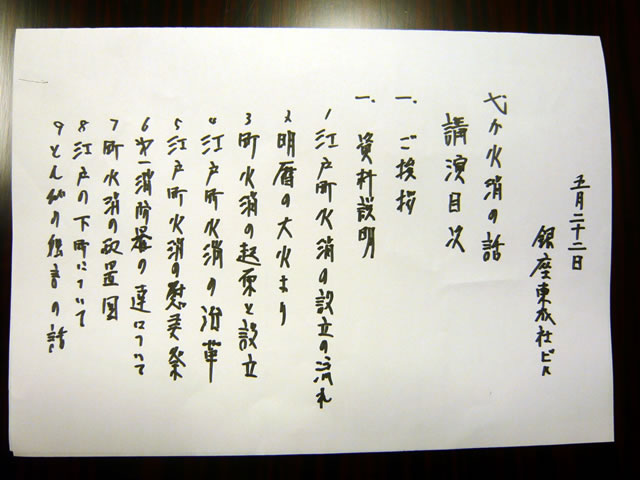 五月二十二日
銀座東成社ビル
火消の話
講演目次
一、ご挨拶
一、資料説明
1江戸町火消の設立の流れ
2明暦の大火より
3町火消の起原と設立
4江戸町火消の沿革
5江戸町火消の慰霊祭
6第一消防署の連について
7町火消の配置図
8江戸の下町について
9の話